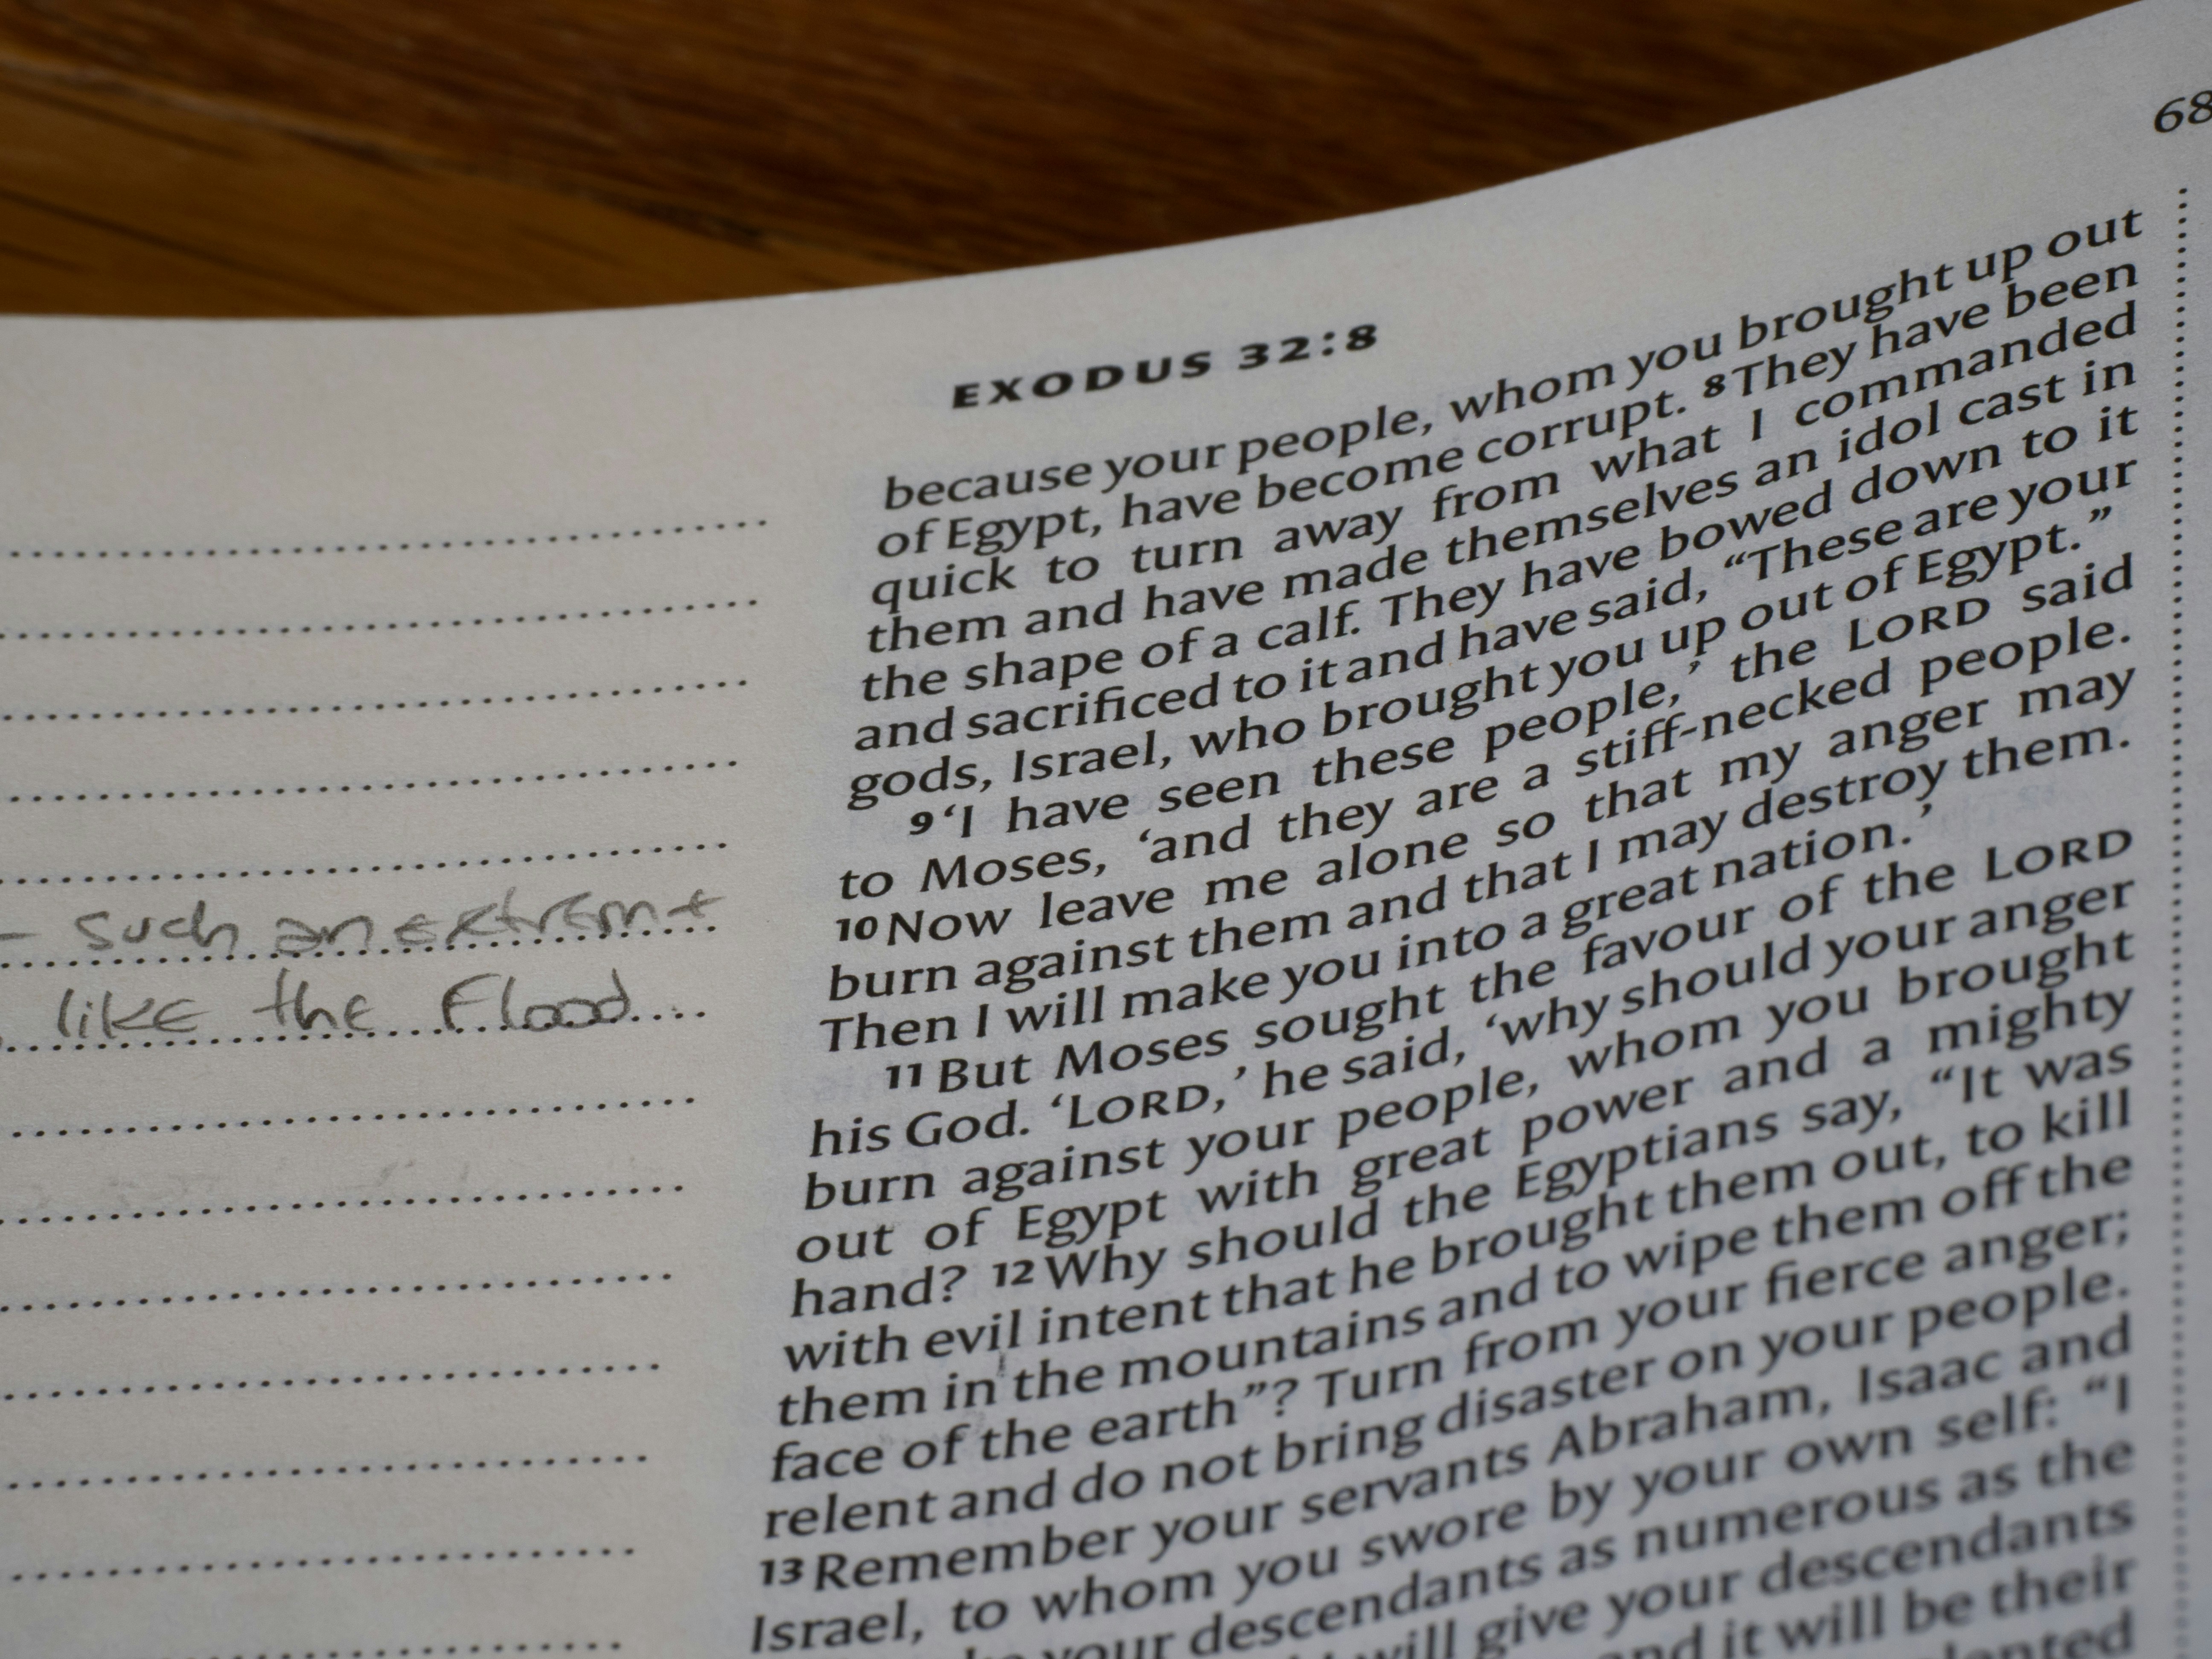 68
EXODUS 32:8
because your people, whom you brought up out
of Egypt, have become corrupt. 8 They have been
quick to turn away from what I commanded
them and have made themselves an idol cast in
the shape of a calf. They have bowed down to it
and sacrificed to it and have said, “These are your
gods, Israel, who brought you up out of Egypt.”
9 ‘I have seen these people,’ the LORD said
to Moses, ‘and they are a stiff-necked people.
10 Now leave me alone so that my anger may
burn against them and that I may destroy them.
Then I will make you into a great nation.’
11 But Moses sought the favour of the LORD
his God. ‘LORD,’ he said, ‘why should your anger
burn against your people, whom you brought
out of Egypt with great power and a mighty
hand? 12 Why should the Egyptians say, “It was
with evil intent that he brought them out, to kill
them in the mountains and to wipe them off the
face of the earth”? Turn from your fierce anger;
relent and do not bring disaster on your people.
13 Remember your servants Abraham, Isaac and
Israel, to whom you swore by your own self: “I
your descendants as numerous as the
will give your descendants
and it will be their
- such an extreme
like the Flood